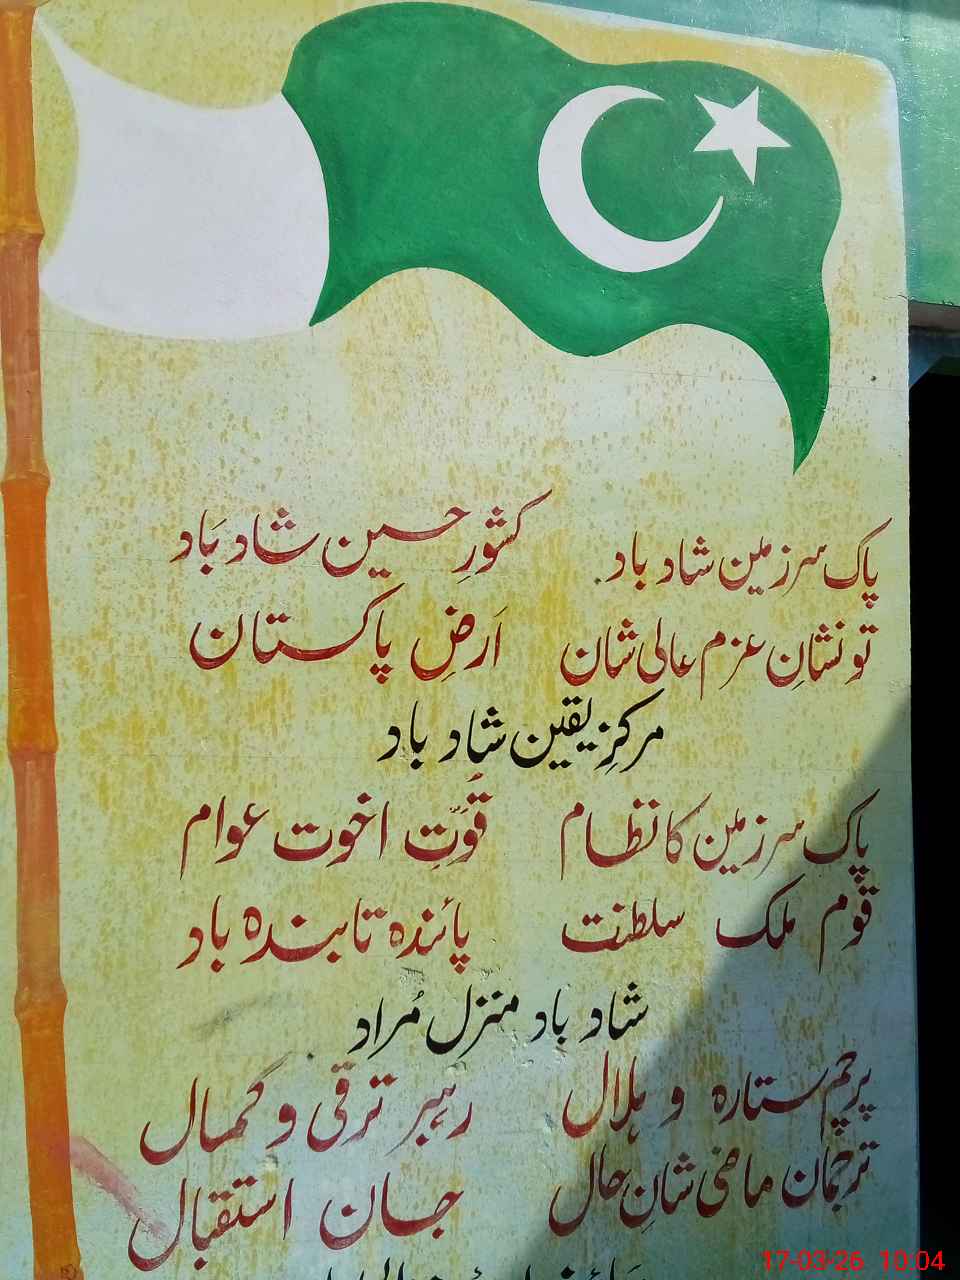 پاک سرزمین شاد باد کشورِ حسین شاد بَاد
تو نشانِ عزم عالی شان اَرضِ پاکستان
مرکزِ یقین شاد باد
پاک سرزمین کا نظام قُوّتِ اخوت عوام
قوم ملک سلطنت پائندہ تابندہ باد
شاد باد منزل مُراد
پرچم ستارہ و ہلال رہبر ترقی و کمال
ترجمان ماضی شانِ حال جان استقبال
17-03-26 10:04